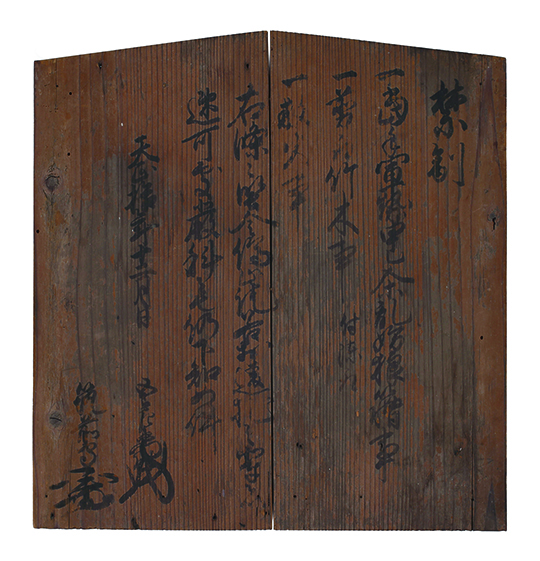 禁制
一当手軍勢甲乙人等乱妨狼藉事
一剪採竹木事 付
一放火事
右條々堅令停止訖若於違犯之輩者
速可処厳科者也仍下知如件
天正 年十二月日
筑前守